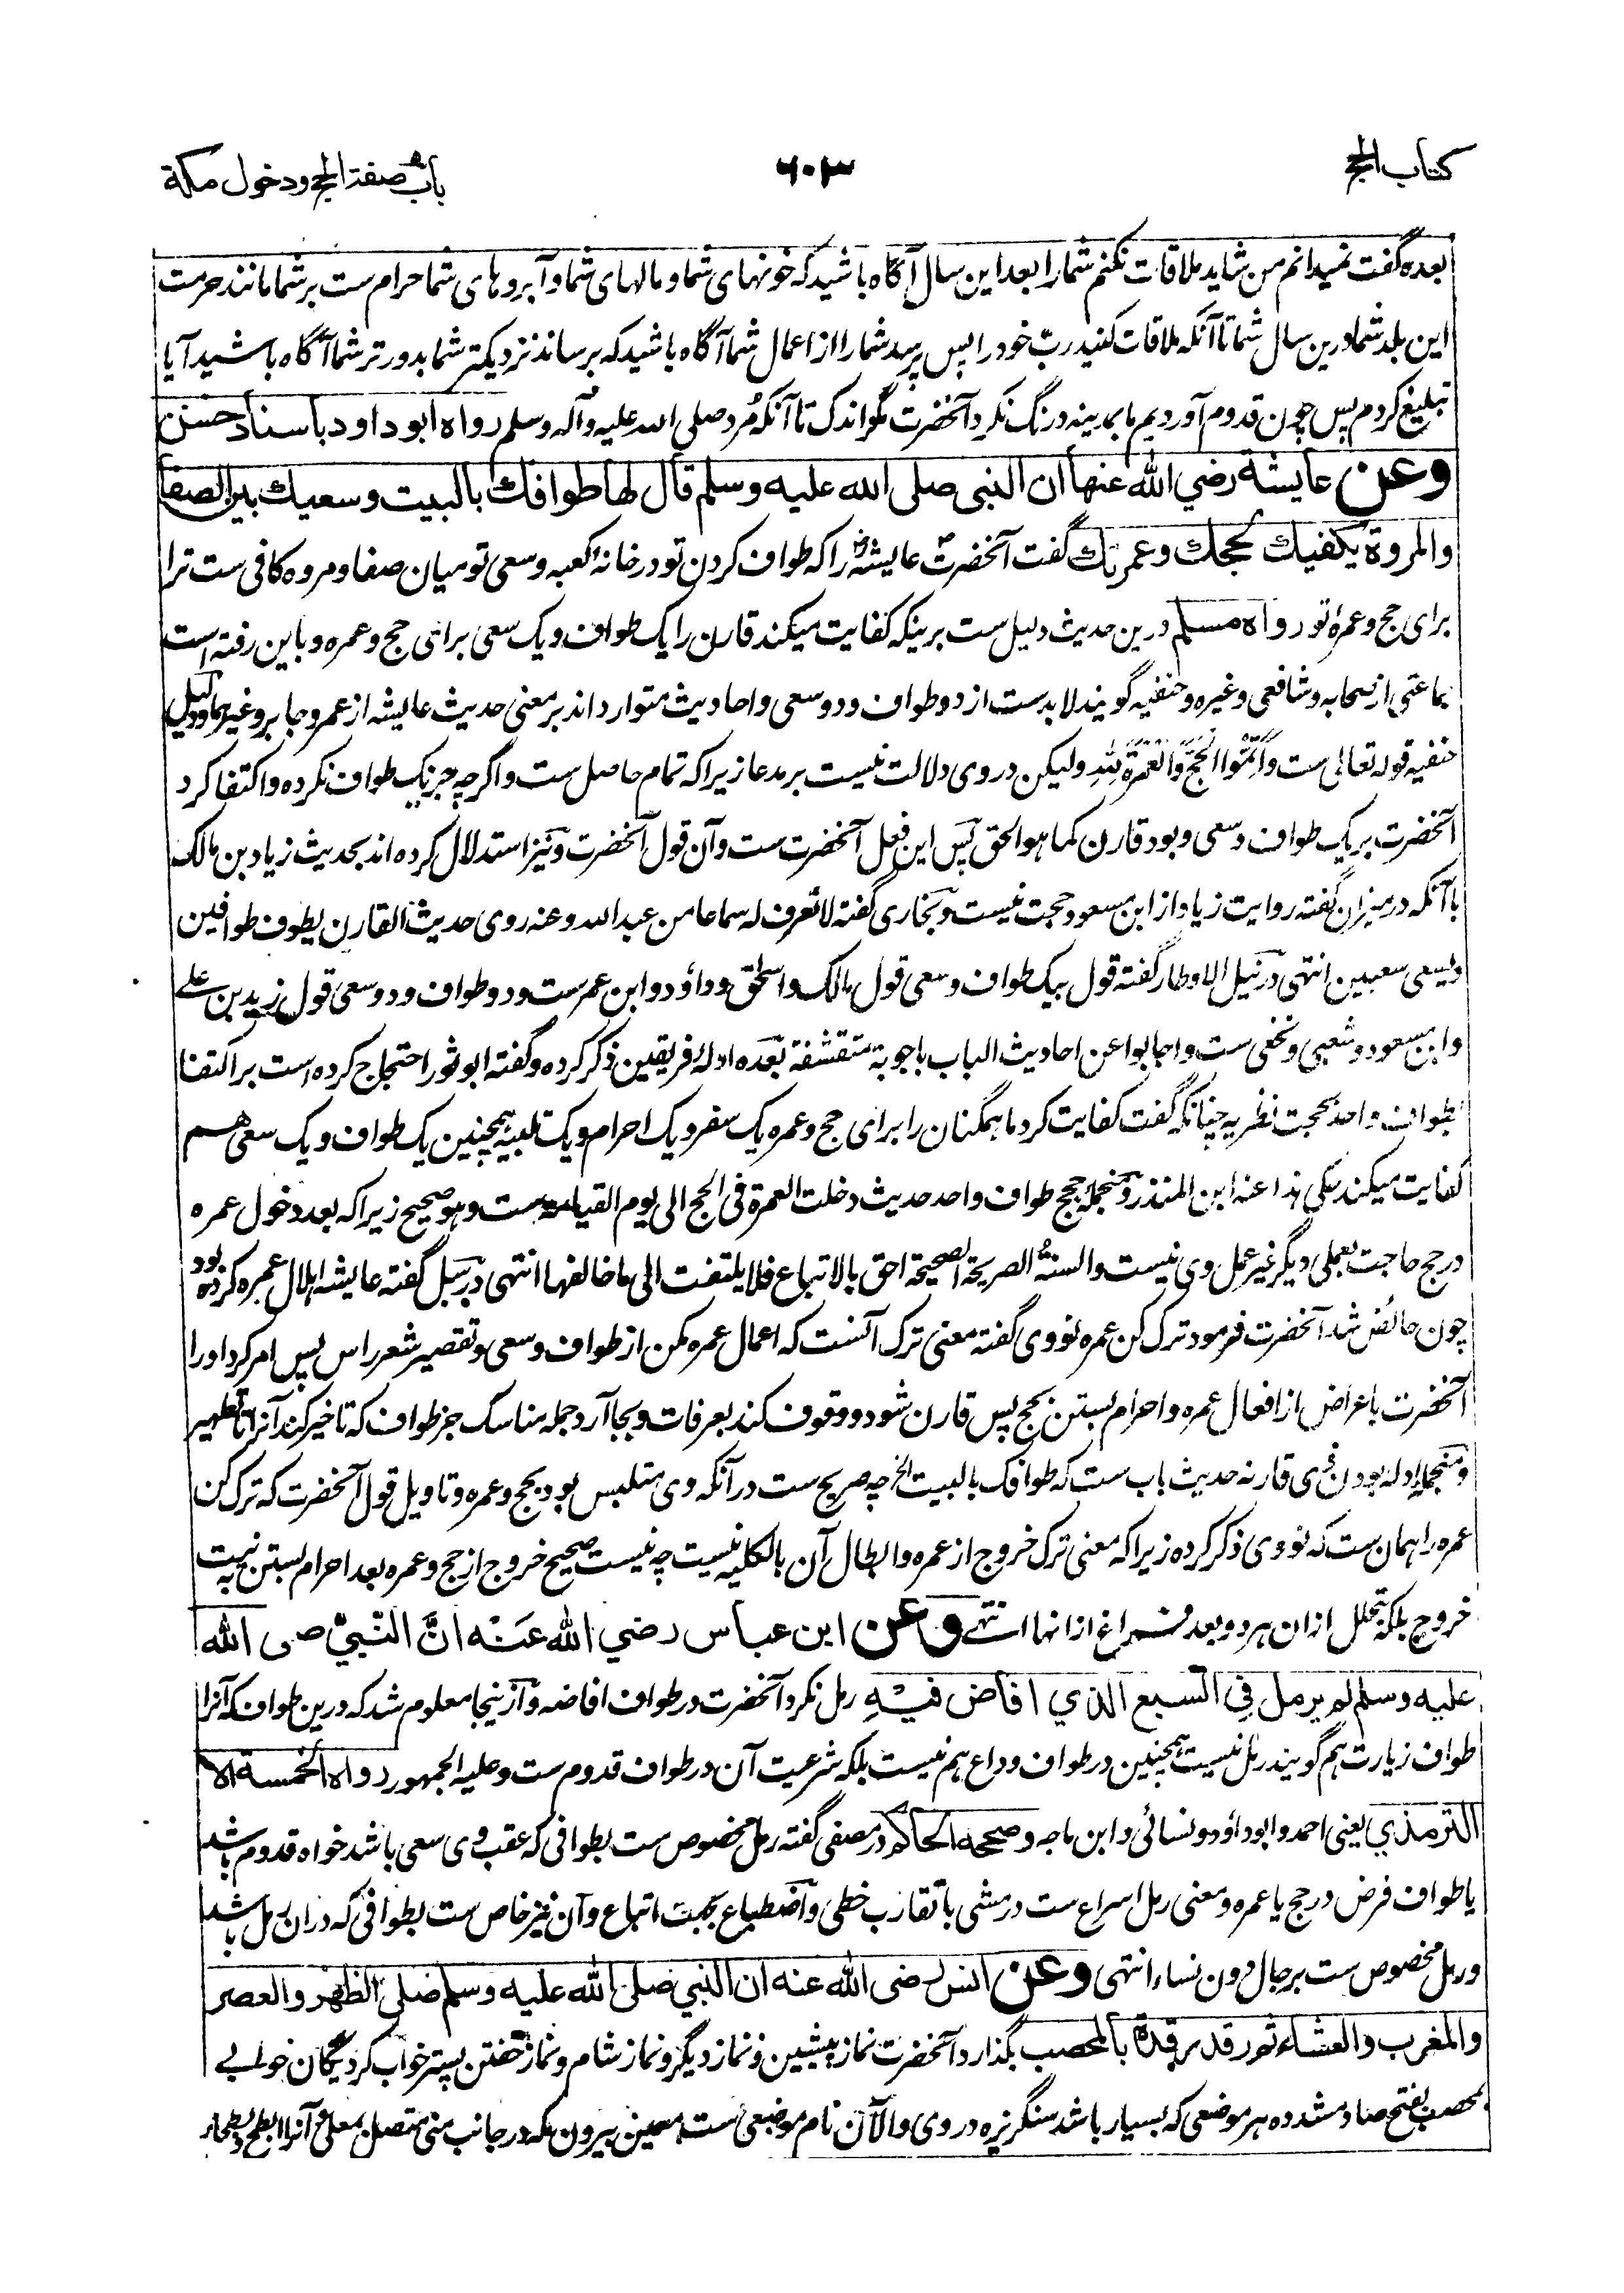 كتاب الحج
٦٠٣
باب صفة الحج ودخول مكة
بعده گفت نمیدانم من شاید ملاقات نکنم شمارا بعد این سال آگاه باشید که خونهای شما ومالهای شما وآبروهای شما حرام ست بر شما مانند حرمت
این بلد شما درین سال شما تا آنکه ملاقات کنید ربّ خود را پس پرسد شمارا از اعمال شما آگاه باشید که برساند نزدیکتر شما بدورتر شما آگاه باشید آیا
تبلیغ کردم پس چون قدوم آوردیم ما بمدینه درنگ نکرد آنحضرت مگر اندک تا آنکه مُرد صلی الله علیه وآله وسلم رواه ابو داود باسناد حسن
وعن عايشة رضي الله عنها ان النبى صلى الله عليه وسلم قال لها طوافك بالبيت وسعيك بين الصفا
والمروة يكفيك لحجك وعمرتك گفت آنحضرت ص عایشه رض را که طواف کردن تو در خانهٔ کعبه وسعی تو میان صفا ومروه کافی ست ترا
برای حج وعمرهٔ تو رواه مسلم درین حدیث دلیل ست برینکه کفایت میکند قارن را یک طواف ویک سعی برای حج وعمره وباین رفته است
جماعتی از صحابه وشافعی وغیره وحنفیه گویند لابدست از دو طواف ودو سعی واحادیث متوارد اند بر معنی حدیث عایشه از عمر وجابر وغیرهما ودلیل
حنفیه قوله تعالی ست وَأَتِمُّوا الْحَجَّ وَالْعُمْرَةَ لِلَّهِ ولیکن در وی دلالت نیست بر مدعا زیرا که تمام حاصل ست واگرچه جز یک طواف نکرده واکتفا کرد
آنحضرت بر یک طواف وسعی وبود قارن کما هو الحق پس این فعل آنحضرت ست وآن قول آنحضرت ونیز استدلال کرده اند بحدیث زیاد بن مالک
با آنکه در میزان گفته روایت زیاد از ابن مسعود حجت نیست وبخاری گفته لا نعرف له سماعا من عبد الله وعنه روی حدیث القارن یطوف طوافین
ویسعی سعیین انتهی در نیل الاوطار گفته قول بیک طواف وسعی قول مالک واسحٰق وداؤد وابن عمر ست ودو طواف ودو سعی قول زید بن علی
وابن مسعود وشعبی ونخعی ست واجابوا عن احادیث الباب باجوبة متقشفة بعده ادلهٔ فریقین ذکر کرده وگفته ابو ثور احتجاج کرده است بر اکتفا
بطواف واحد بحجت نظریه چنانکه گفت کفایت کرد ما همگنان را برای حج وعمره یک سفر ویک احرام ویک تلبیه همچنین یک طواف ویک سعی هم
کفایت میکند حکی هذا عنه ابن المنذر ومنجملهٔ حجج طواف واحد حدیث دخلت العمرة فی الحج الی یوم القیامة ست وهو صحیح زیرا که بعد دخول عمره
در حج حاجت بعملی دیگر غیر عمل وی نیست والسنة الصریحة الصحیحة احق بالاتباع فلا یلتفت الی ما خالفها انتهی در سبل گفته عایشه اهلال عمره کرده بود
چون حائض شد آنحضرت فرمود ترک کن عمره نووی گفته معنی ترک آنست که اعمال عمره مکن از طواف وسعی وتقصیر شعر راس پس امر کرد او را
آنحضرت باعراض از افعال عمره واحرام بستن بحج پس قارن شود ووقوف کند بعرفات وبجا آرد جمله مناسک جز طواف که تاخیر کند آنرا تا تطهیر
ومنجملهٔ ادله بودن وی قارنه حدیث باب ست که طوافک بالبیت الخ چه صریح ست در آنکه وی متلبس بود بحج وعمره وتاویل قول آنحضرت که ترک کن
عمره را همان ست که نووی ذکر کرده زیرا که معنی ترک خروج از عمره وابطال آن بالکلیه نیست چه نیست صحیح خروج از حج وعمره بعد احرام بستن به نیت
خروج بلکه بتحلل از ان هر دو بعد فراغ از انها انتهی وعن ابن عباس رضي الله عَنْه انَّ النَّبيَّ صلى الله
عليه وسلم لم يرمل في السبع الذي افاض فِيْهِ رمل نکرد آنحضرت در طواف افاضه واز ینجا معلوم شد که درین طواف که آنرا
طواف زیارت هم گویند رمل نیست همچنین در طواف وداع هم نیست بلکه شرعیت آن در طواف قدوم ست وعلیه الجمهور رواه الخمسة الا
الترمذي یعنی احمد وابو داؤد ونسائی وابن ماجه وصححه الحاكم در مصفی گفته رمل مخصوص ست بطوافی که عقب وی سعی باشد خواه قدوم باشد
یا طواف فرض در حج یا عمره ومعنی رمل اسراع ست در مشی با تقارب خطی واضطباع بجهت اتباع وآن نیز خاص ست بطوافی که دران رمل باشد
ورمل مخصوص ست برجال دون نساء انتهی وعن انس رضى الله عنه ان النبي صلى الله عليه وسلم صلى الظهر والعصر
والمغرب والعشاء ثم رقد رقدة بالمحصب بگذارد آنحضرت نماز پیشین ونماز دیگر ونماز شام ونماز خفتن پستر خواب کرد یگان خوابے
بمحصب بفتح صاد مشدده هر موضعی که بسیار باشد سنگریزه در وی والآن نام موضعی ست معین بیرون مکه در جانب منی متصل بمعلی وآنرا ابطح وبطحاء